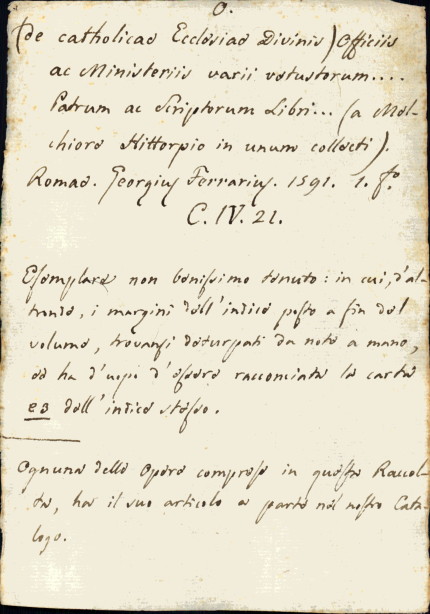 O.
(De catholicae Ecclesiae Divinis) Officiis
ac Ministeriis varii vetustorum....
Patrum ac Scriptorum Libri... (a Mel-
chiore Hittorpio in unum collecti).
Romae. Georgius Ferrarius. 1591. 1. fo.
C. IV. 21.
Esemplare non benissimo tenuto: in cui, d'al-
tronde, i margini dell'indice posto a fin del
volume, trovansi deturpati da note a mano,
ed ha d'uopo d'essere racconciata la carta
e3 dell'indice stesso.
Ognuna delle Opere comprese in questa Raccol-
ta, ha il suo articolo a parte nel nostro Cata-
logo.